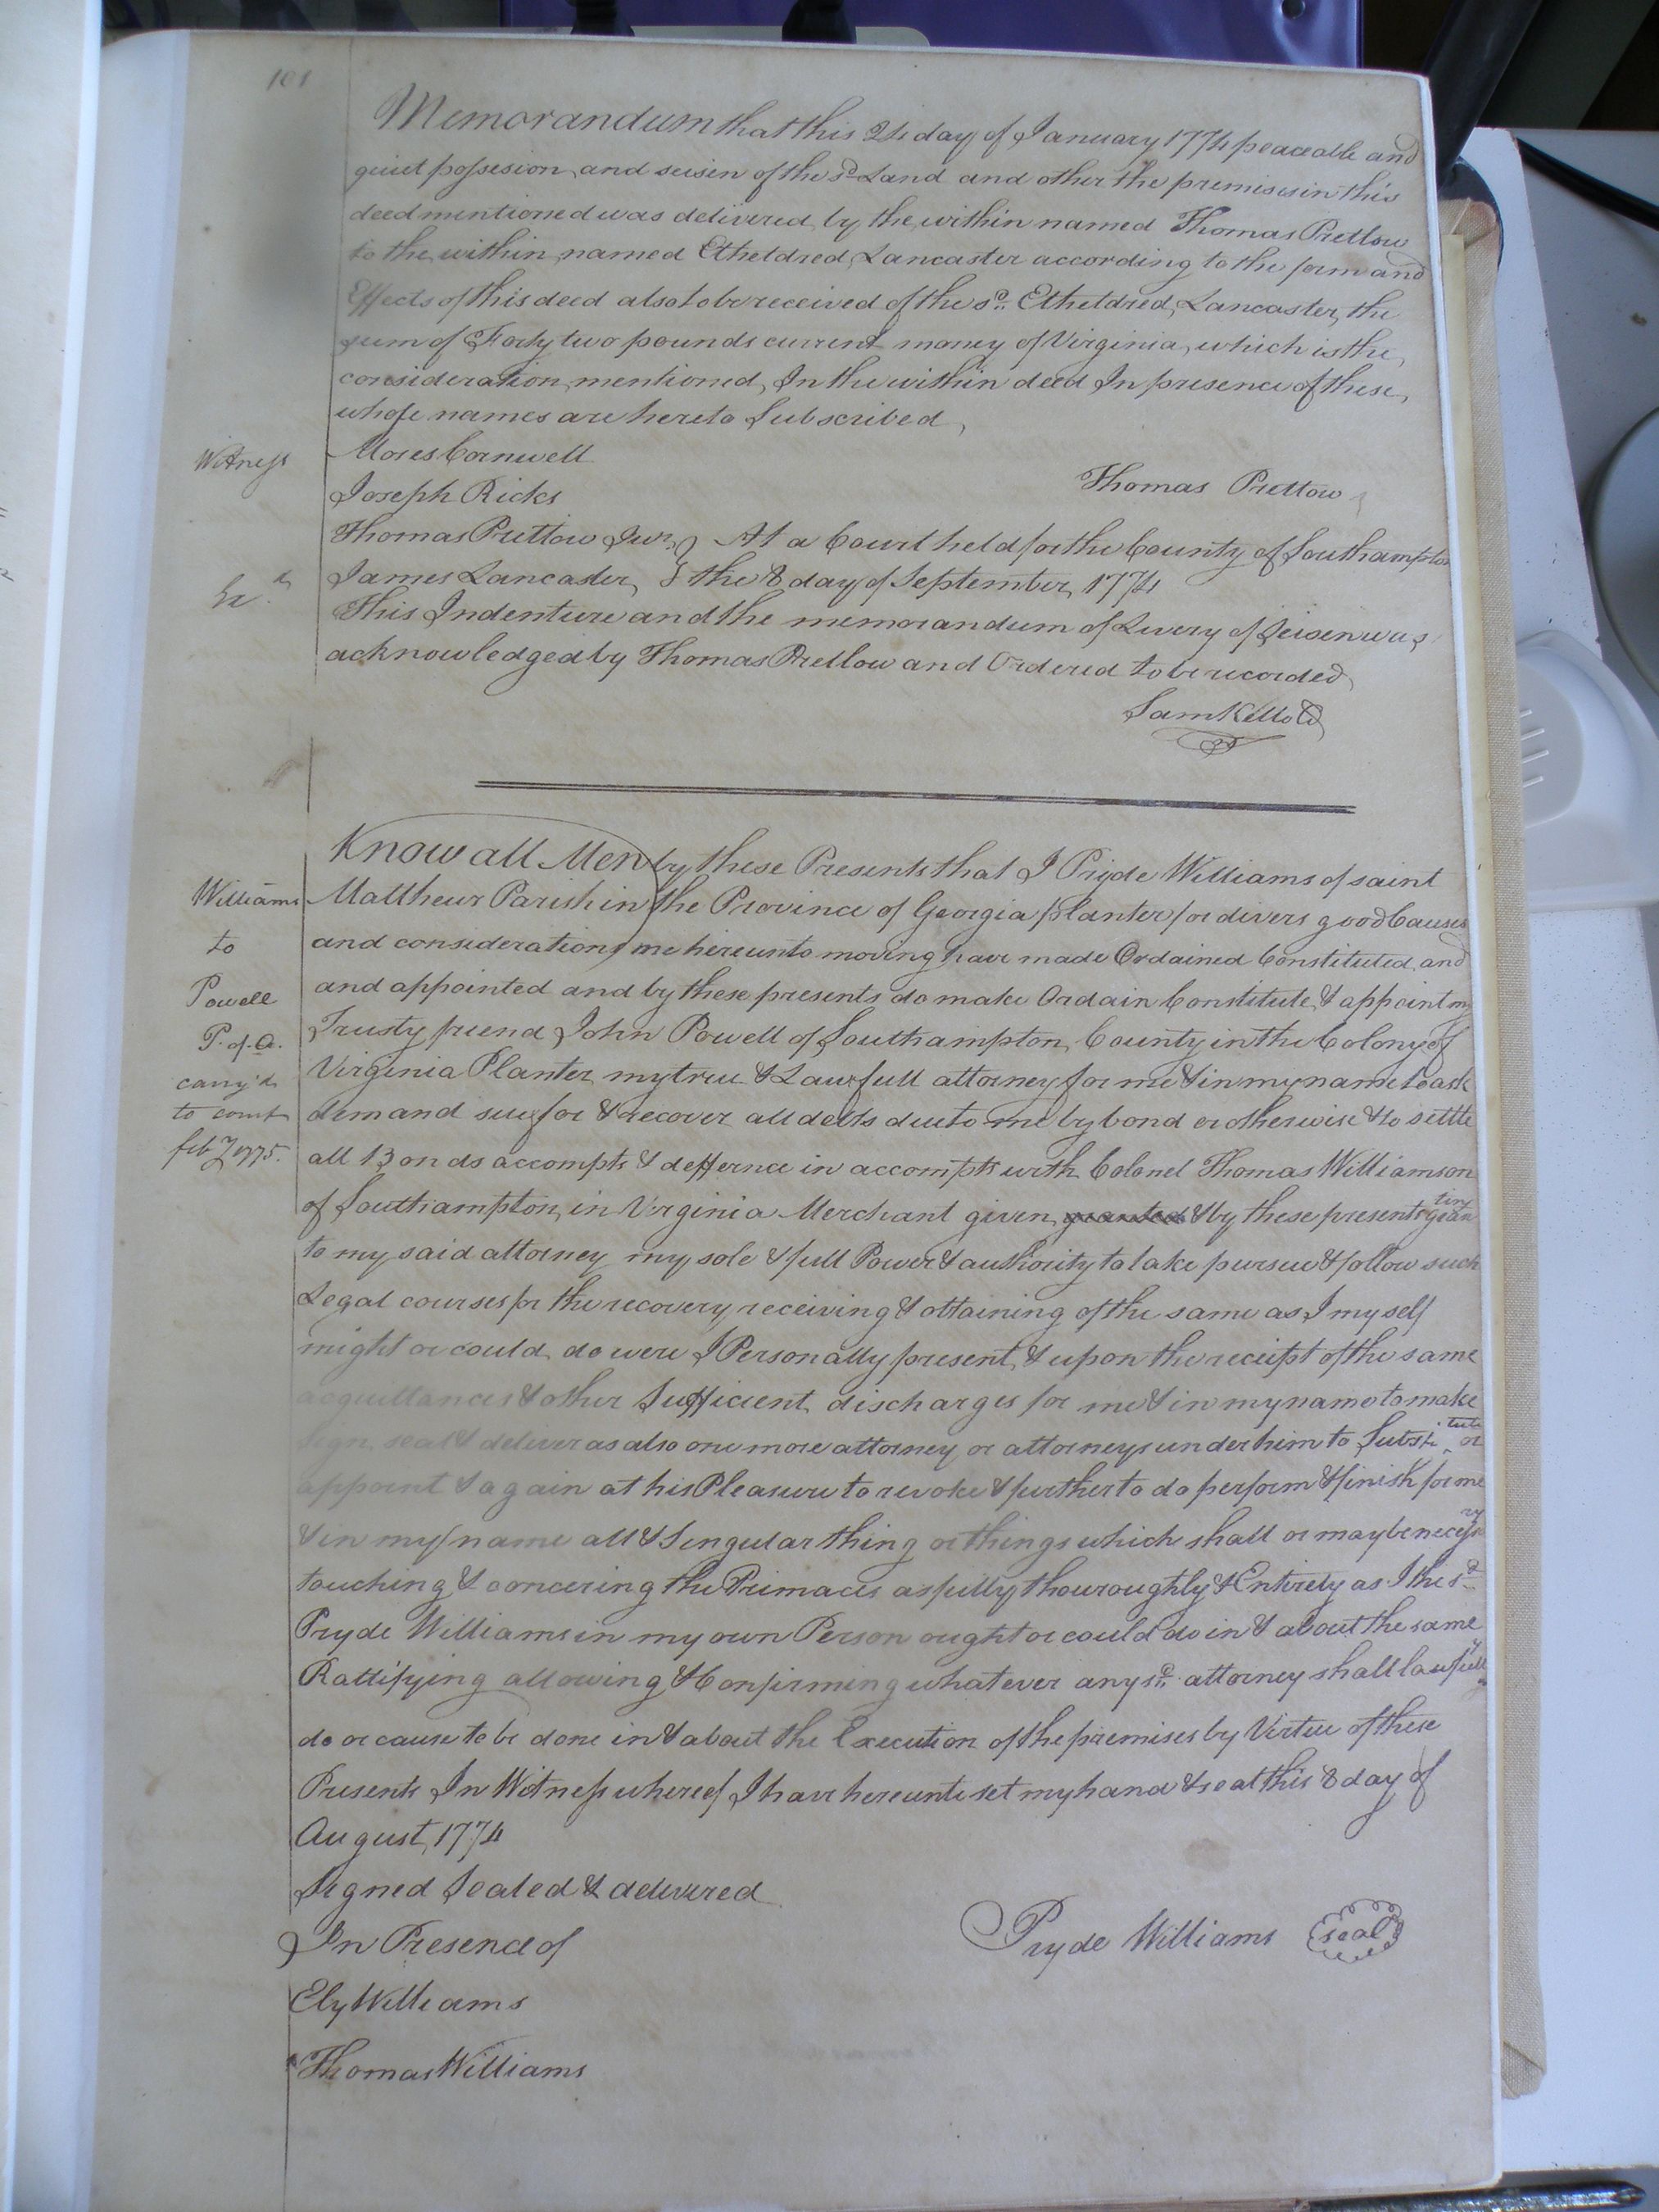 101
Memorandum that this 24 day of January 1774 peaceable and
quiet possesion and seisen of the sd Land and other the premises in this
deed mentioned was delivered by the within named Thomas Pretlow
to the within named Etheldred Lancaster according to the form and
Effects of this deed also to be received of the sd. Etheldred Lancaster, the
sum of Forty two pounds current money of Virginia, which is the,
consideration, mentioned, In the within deed In presence of these,
whose names are hereto Subscribed,
Witness Moses Cornwell
Joseph Ricks Thomas Pretlow
Thomas Pretlow Junr. } At a Court held for the County of Southampton
Ex.d James Lancaster, } the 8 day of September, 1774
This Indenture and the memorandum of Livery of Seisen was
acknowledged by Thomas Pretlow and Ordered to be recorded,
Sam Kello
Know all Men by these Presents that I Pryde Williams of saint
Williams Matthews Parish in the Province of Georgia planter for divers good Causes
to and considerations me hereunto moving have made Ordained Constituted, and
Powell and appointed and by these presents do make Ordain Constitute, & appoint my
P. of. a. Trusty friend John Powell of Southampton, County in the Colony of
carry'd Virginia Planter my true & Lawfull attorney for me & in my name to ask
to court demand sue for & recover all debts due to me by bond or otherwise & to settle
feb 1775. all Bonds accompts & deffernce in accompts with Colonel Thomas Williamson
of Southampton, in Virginia Merchant given, granted & by these presents granting
to my said attorney my sole & full Power & authority to take pursue & follow such
Legal courses for the recovery receiving & ottaining of the same as I my self
might or could do were I Personally present, & upon the receipt of the same
acquittances & other Sufficient discharges for me & in my name to make
sign seal & deliver as also one more attorney or attorneys under him to Substitute or
appoint & again at his Pleasure to revoke & further to do perform & finish for me
& in my name all & Singular thing or things which shall or may be necessary
touching & concering the Primaces as fully thouroughtly & Entirely as I the sd
Pryde Williams in my own Person ought or could do in & about the same
Rattifying allowing & Confirming whatever any sd. attorney shall lawfully
do or cause to be done in & about the Execution of the premises by Virtue of these
Presents In Witness whereof I have hereunto set my hand & seal this 8 day of
August, 1774
Signed Sealed & delivered
In Presence of Pryde Williams seal
Ely Williams
Thomas Williams